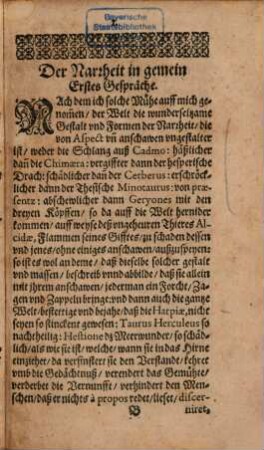 Bayerische
Staatsbibliothek
Der Narrheit in gemein
Erstes Gespräche.
NAch dem ich solche Mühe auff mich ge-
nom̃en / der Welt die wunderseltzame
Gestalt vnd Formen der Narrheit / die
von Aspect vñ anschawen vngestalter
ist / weder die Schlang auß Cadmo: häßlicher
dañ die Chimæra: vergiffter dann der hesperische
Drach: schädlicher dañ der Cerberus: erschröck-
licher dann der Thesische Minotaurus: von præ-
sentz: abschewlicher dann Geryones mit den
dreyen Köpffen / so da auff die Welt hernider
kommen / auff weyse deß vngeheuren Thieres Al-
cidæ, Flammen seines Gifftes / zu schaden dessen
vnd jenes / ohne einiges anschawen / außzuspeyen:
so ist es wol an deme / daß dieselbe solcher gestalt
vnd massen / beschreib vnnd abbilde / daß sie allein
mit jhrem anschawen / jederman ein Forcht / Za-
gen vnd Zappeln bringe: vnd dann auch die gantze
Welt / bestettige vnd bejahe / daß die Harpiæ, nicht
seyen so stinckent gewesen: Taurus Herculeus so
nachtheilig: Hestione dz Meerwunder / so schäd-
lich / als wie sie ist / welche / wann sie in das Hirne
einziehet / da verfinstert sie den Verstandt / kehret
vmb die Gedächtnuß / verendert das Gemühte /
verderbet die Vernunfft / verhindert den Men-
schen / daß er nichts à propos redet / lieset / discer-
B niret,